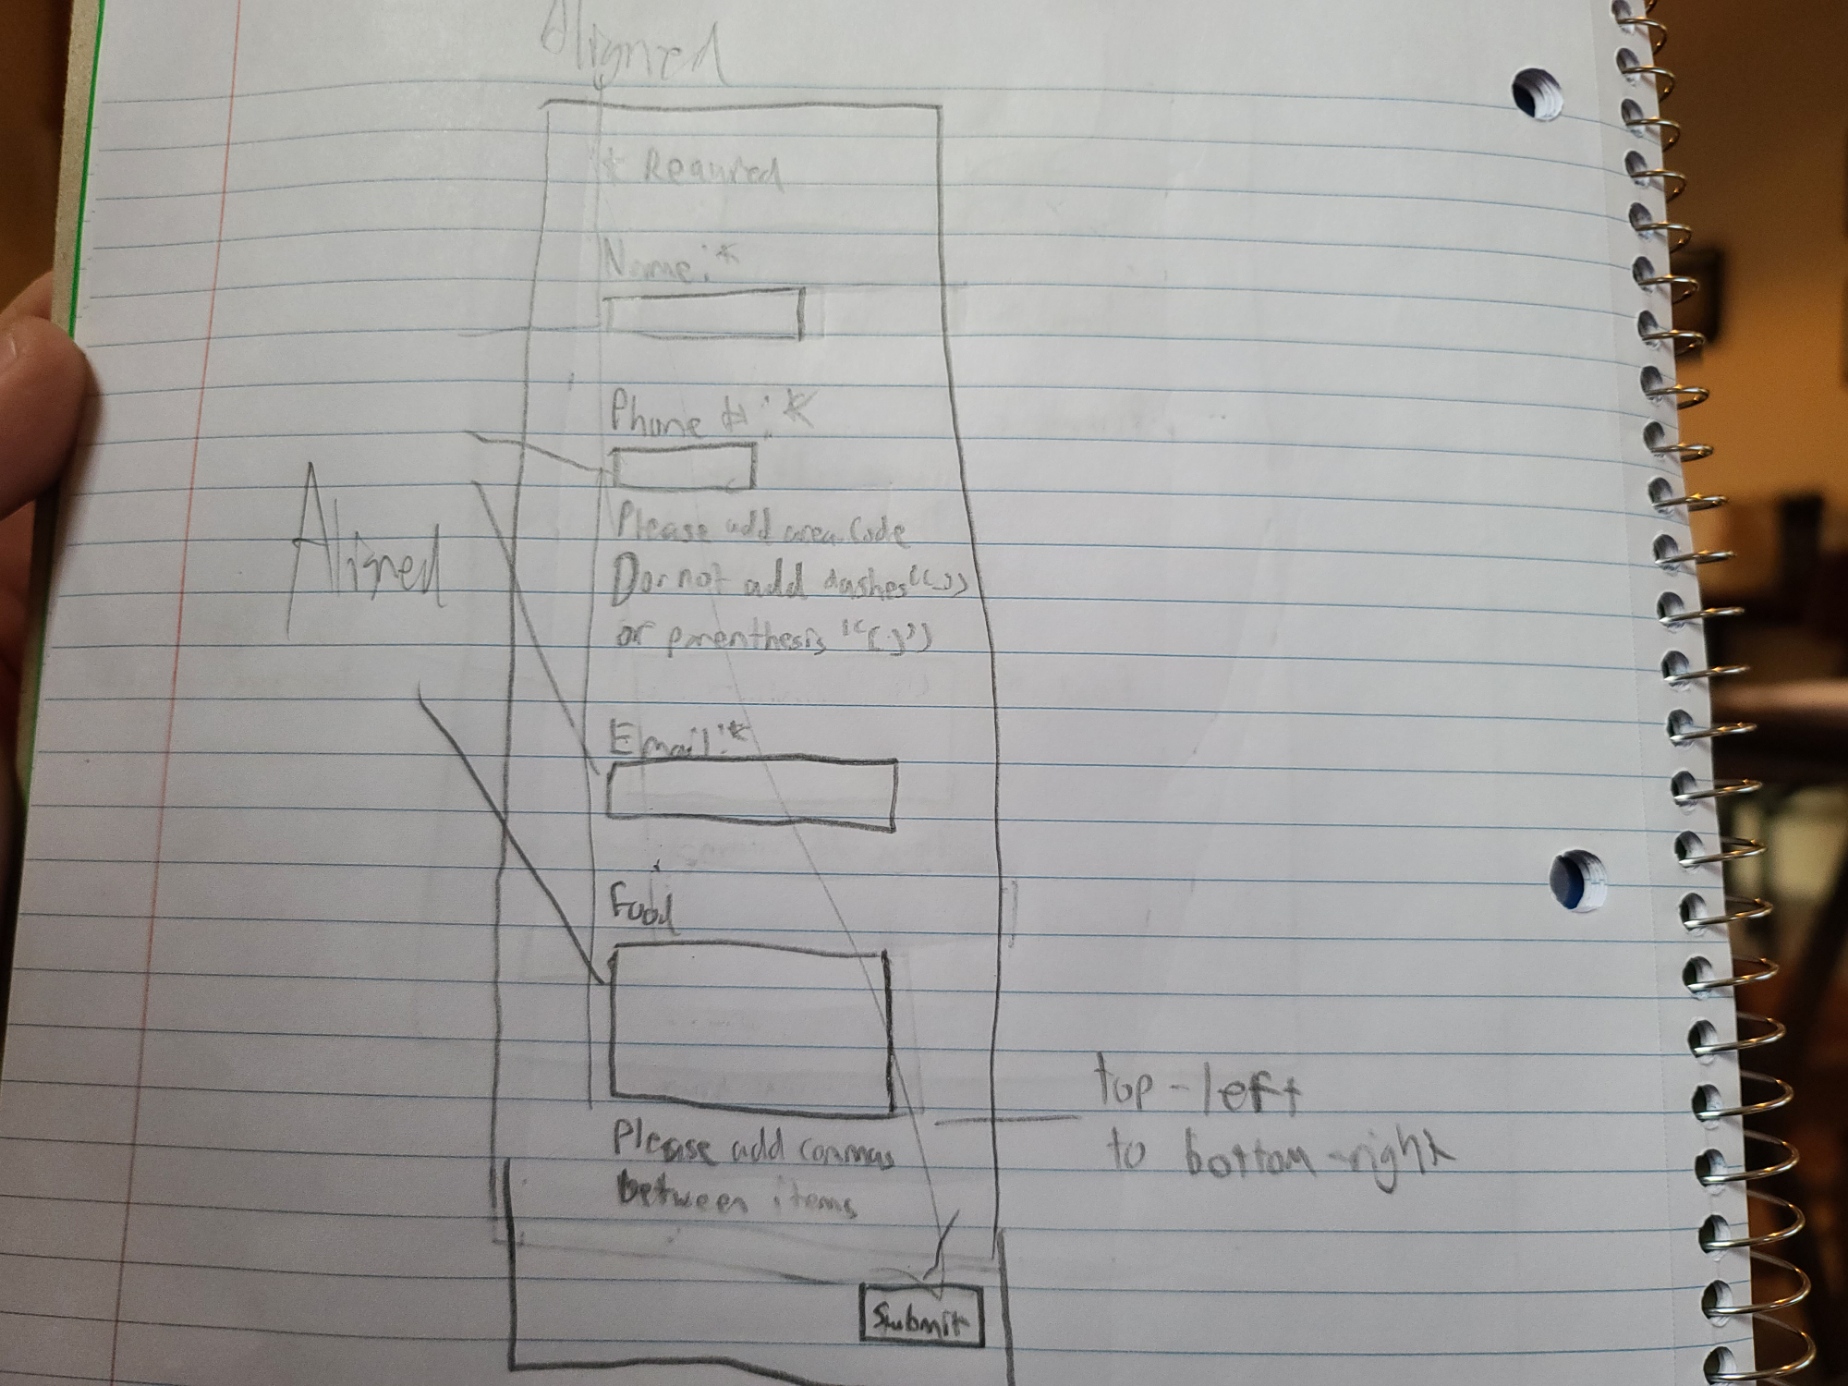 Aligned
* Required
Name:*
Phone #:*
Please add area code
Do not add dashes "-"
or parenthesis "( )"
Aligned
Email:*
Food
Please add commas
between items
top-left
to bottom-right
Submit